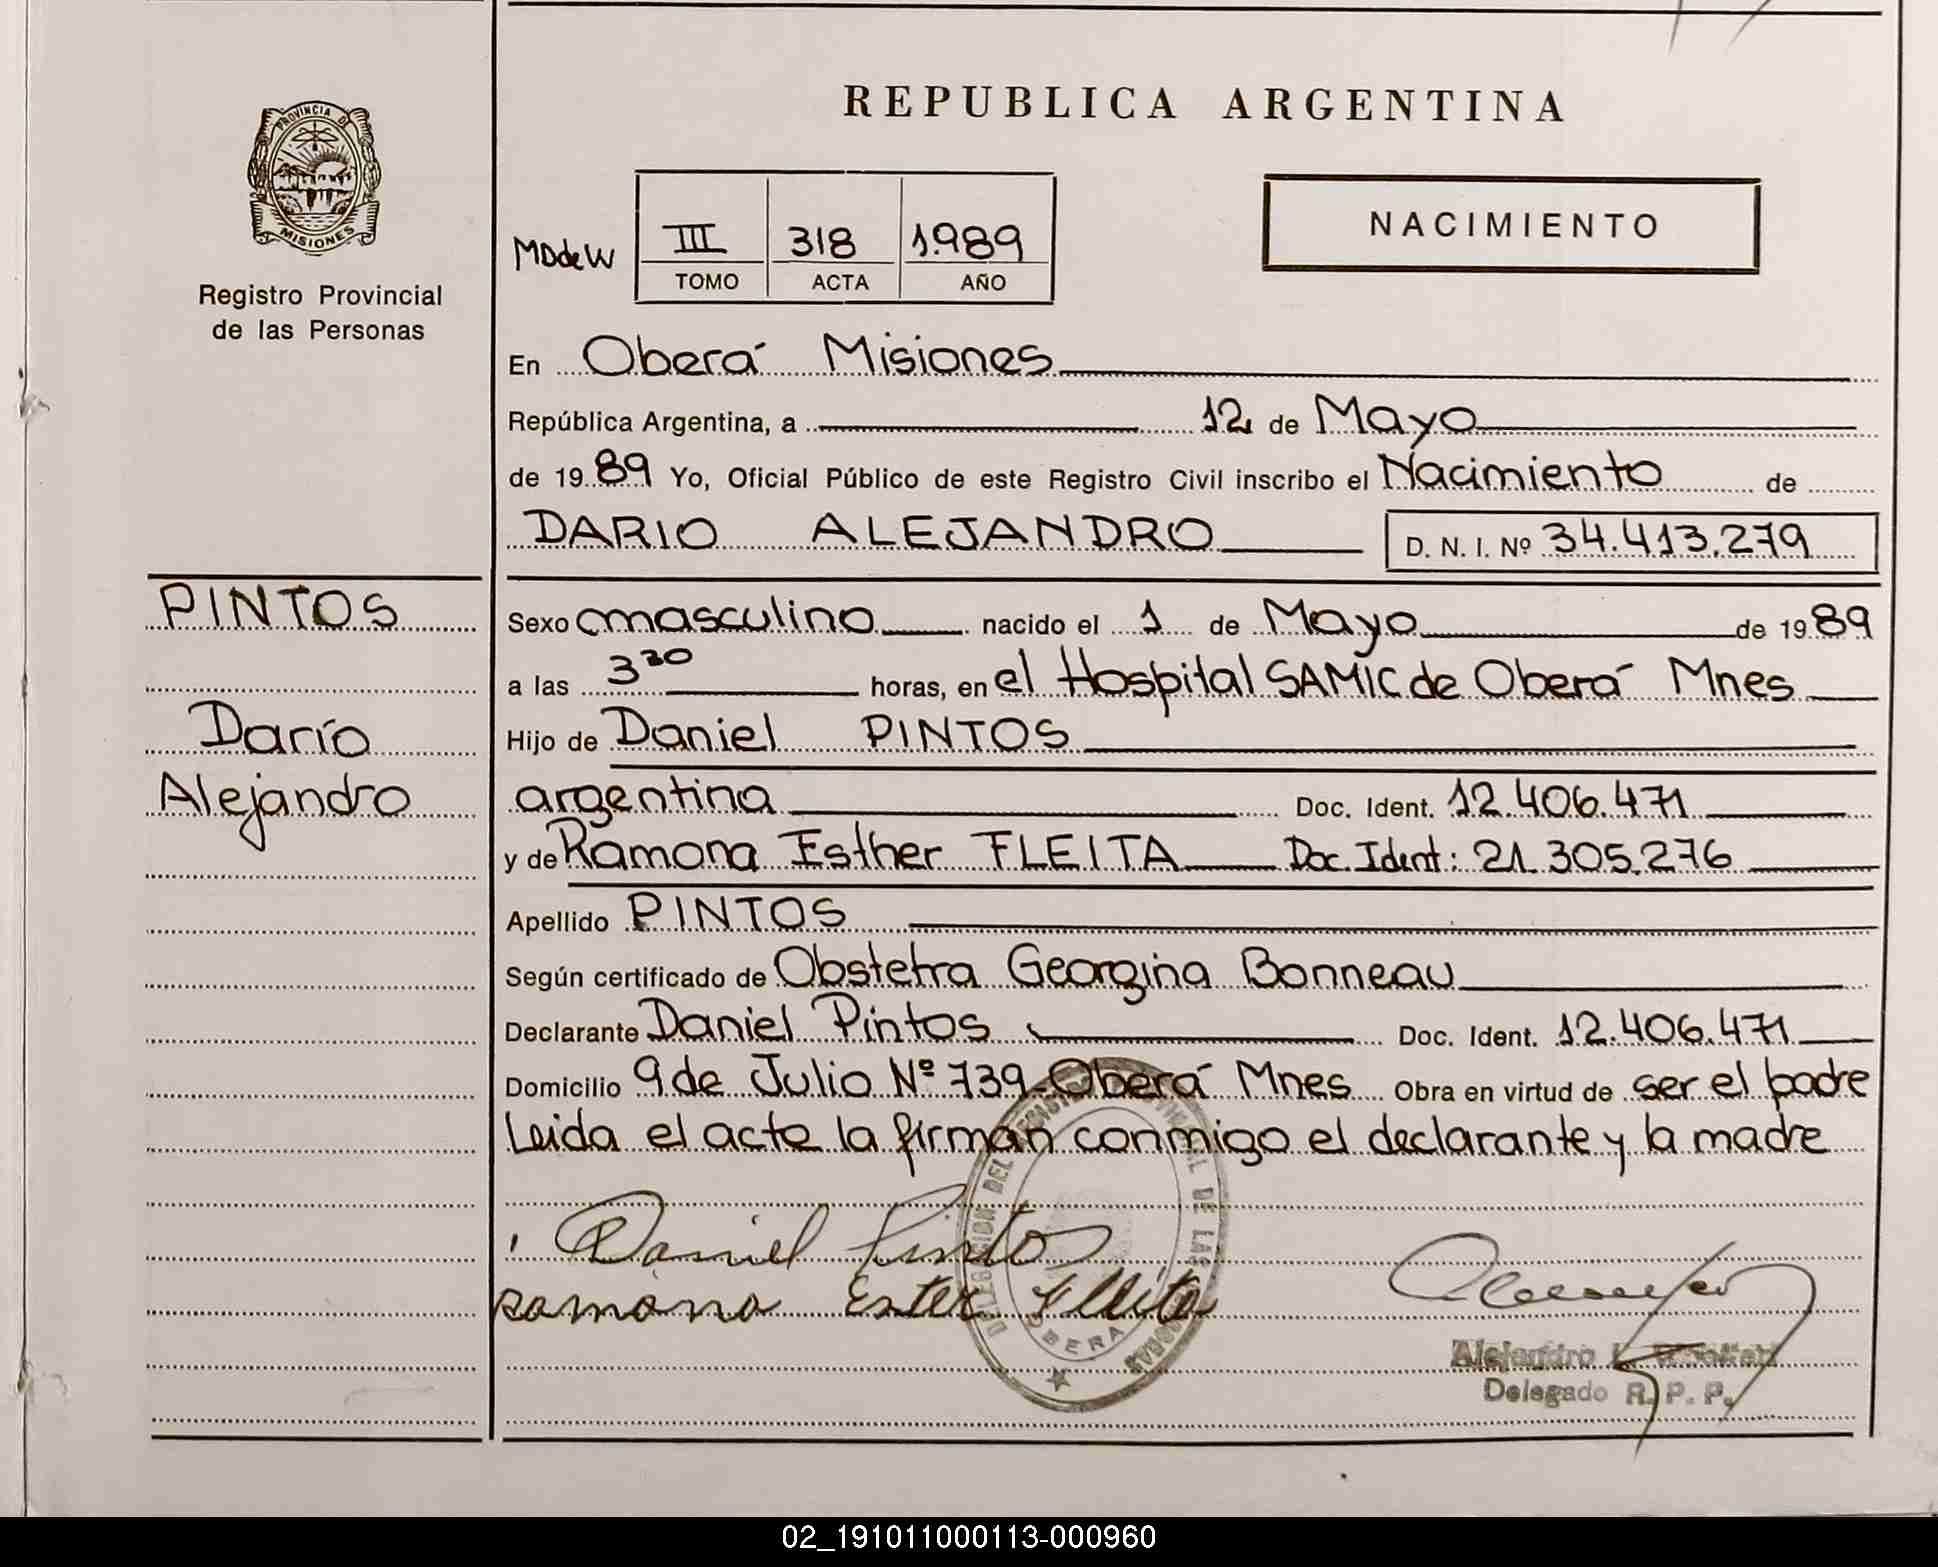 REPUBLICA ARGENTINA
PROVINCIA DE
MISIONES
Registro Provincial
de las Personas
MDdeW
III 318 1.989
TOMO ACTA AÑO
NACIMIENTO
En Oberá Misiones
República Argentina, a 12 de Mayo
de 1989 Yo, Oficial Público de este Registro Civil inscribo el Nacimiento de
DARIO ALEJANDRO D. N. I. Nº 34.413.279
PINTOS
Darío
Alejandro
Sexo masculino nacido el 1 de Mayo de 1989
a las 3 30 horas, en el Hospital SAMIC de Oberá Mnes
Hijo de Daniel PINTOS
argentina Doc. Ident. 12.406.471
y de Ramona Esther FLEITA Doc. Ident: 21.305.276
Apellido PINTOS
Según certificado de Obstetra Georgina Bonneau
Declarante Daniel Pintos Doc. Ident. 12.406.471
Domicilio 9 de Julio Nº 739 Oberá Mnes Obra en virtud de ser el padre
Leida el acta la firman conmigo el declarante y la madre
Daniel Pintos
Ramona Ester Fleita
DELEGACION DEL REGISTRO PROVINCIAL DE LAS PERSONAS
OBERA
Alejandro
Delegado R. P. P.
02_191011000113-000960